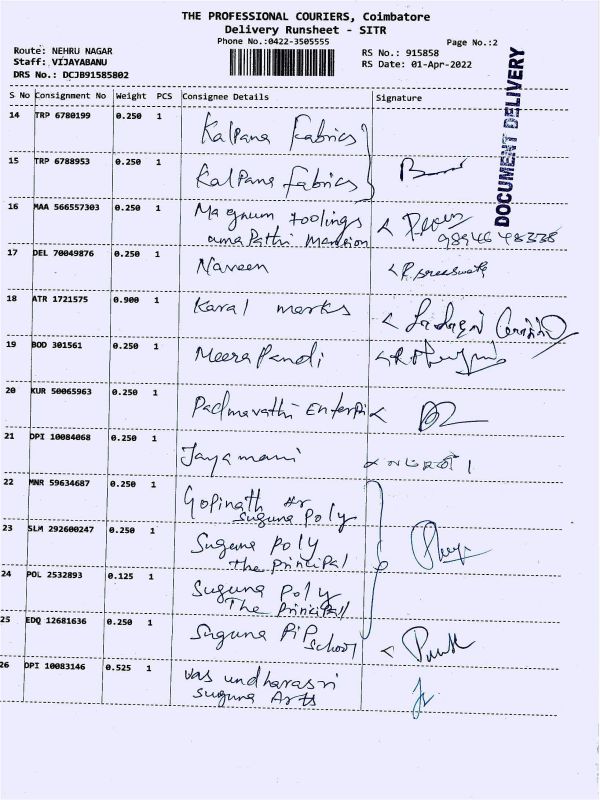 THE PROFESSIONAL COURIERS, Coimbatore
Delivery Runsheet - SITR
Phone No.:0422-3505555
Page No.:2
Route: NEHRU NAGAR
Staff: VIJAYABANU
DRS No.: DCJB91585802
RS No.: 915858
RS Date: 01-Apr-2022
DOCUMENT DELIVERY
S No Consignment No Weight PCS Consignee Details Signature
14 TRP 6780199 0.250 1 Kalpana Fabrics
15 TRP 6788953 0.250 1 Kalpana fabrics
16 MAA 566557303 0.250 1 Magnum toolings
amapathi Mansion 9894648338
17 DEL 70049876 0.250 1 Naveen
18 ATR 1721575 0.900 1 Karal marks
19 BOD 301561 0.250 1 Meera Pandi
20 KUR 50065963 0.250 1 Padmavathi Enterpi
21 DPI 10084068 0.250 1 Jayamani
22 MNR 59634687 0.250 1 Gopinath Ar
suguna poly
23 SLM 292600247 0.250 1 Suguna poly
the principal
24 POL 2532893 0.125 1 Suguna poly
The principal
25 EDQ 12681636 0.250 1 Suguna PiP
school
26 DPI 10083146 0.525 1 vas undharasri
suguna Arts